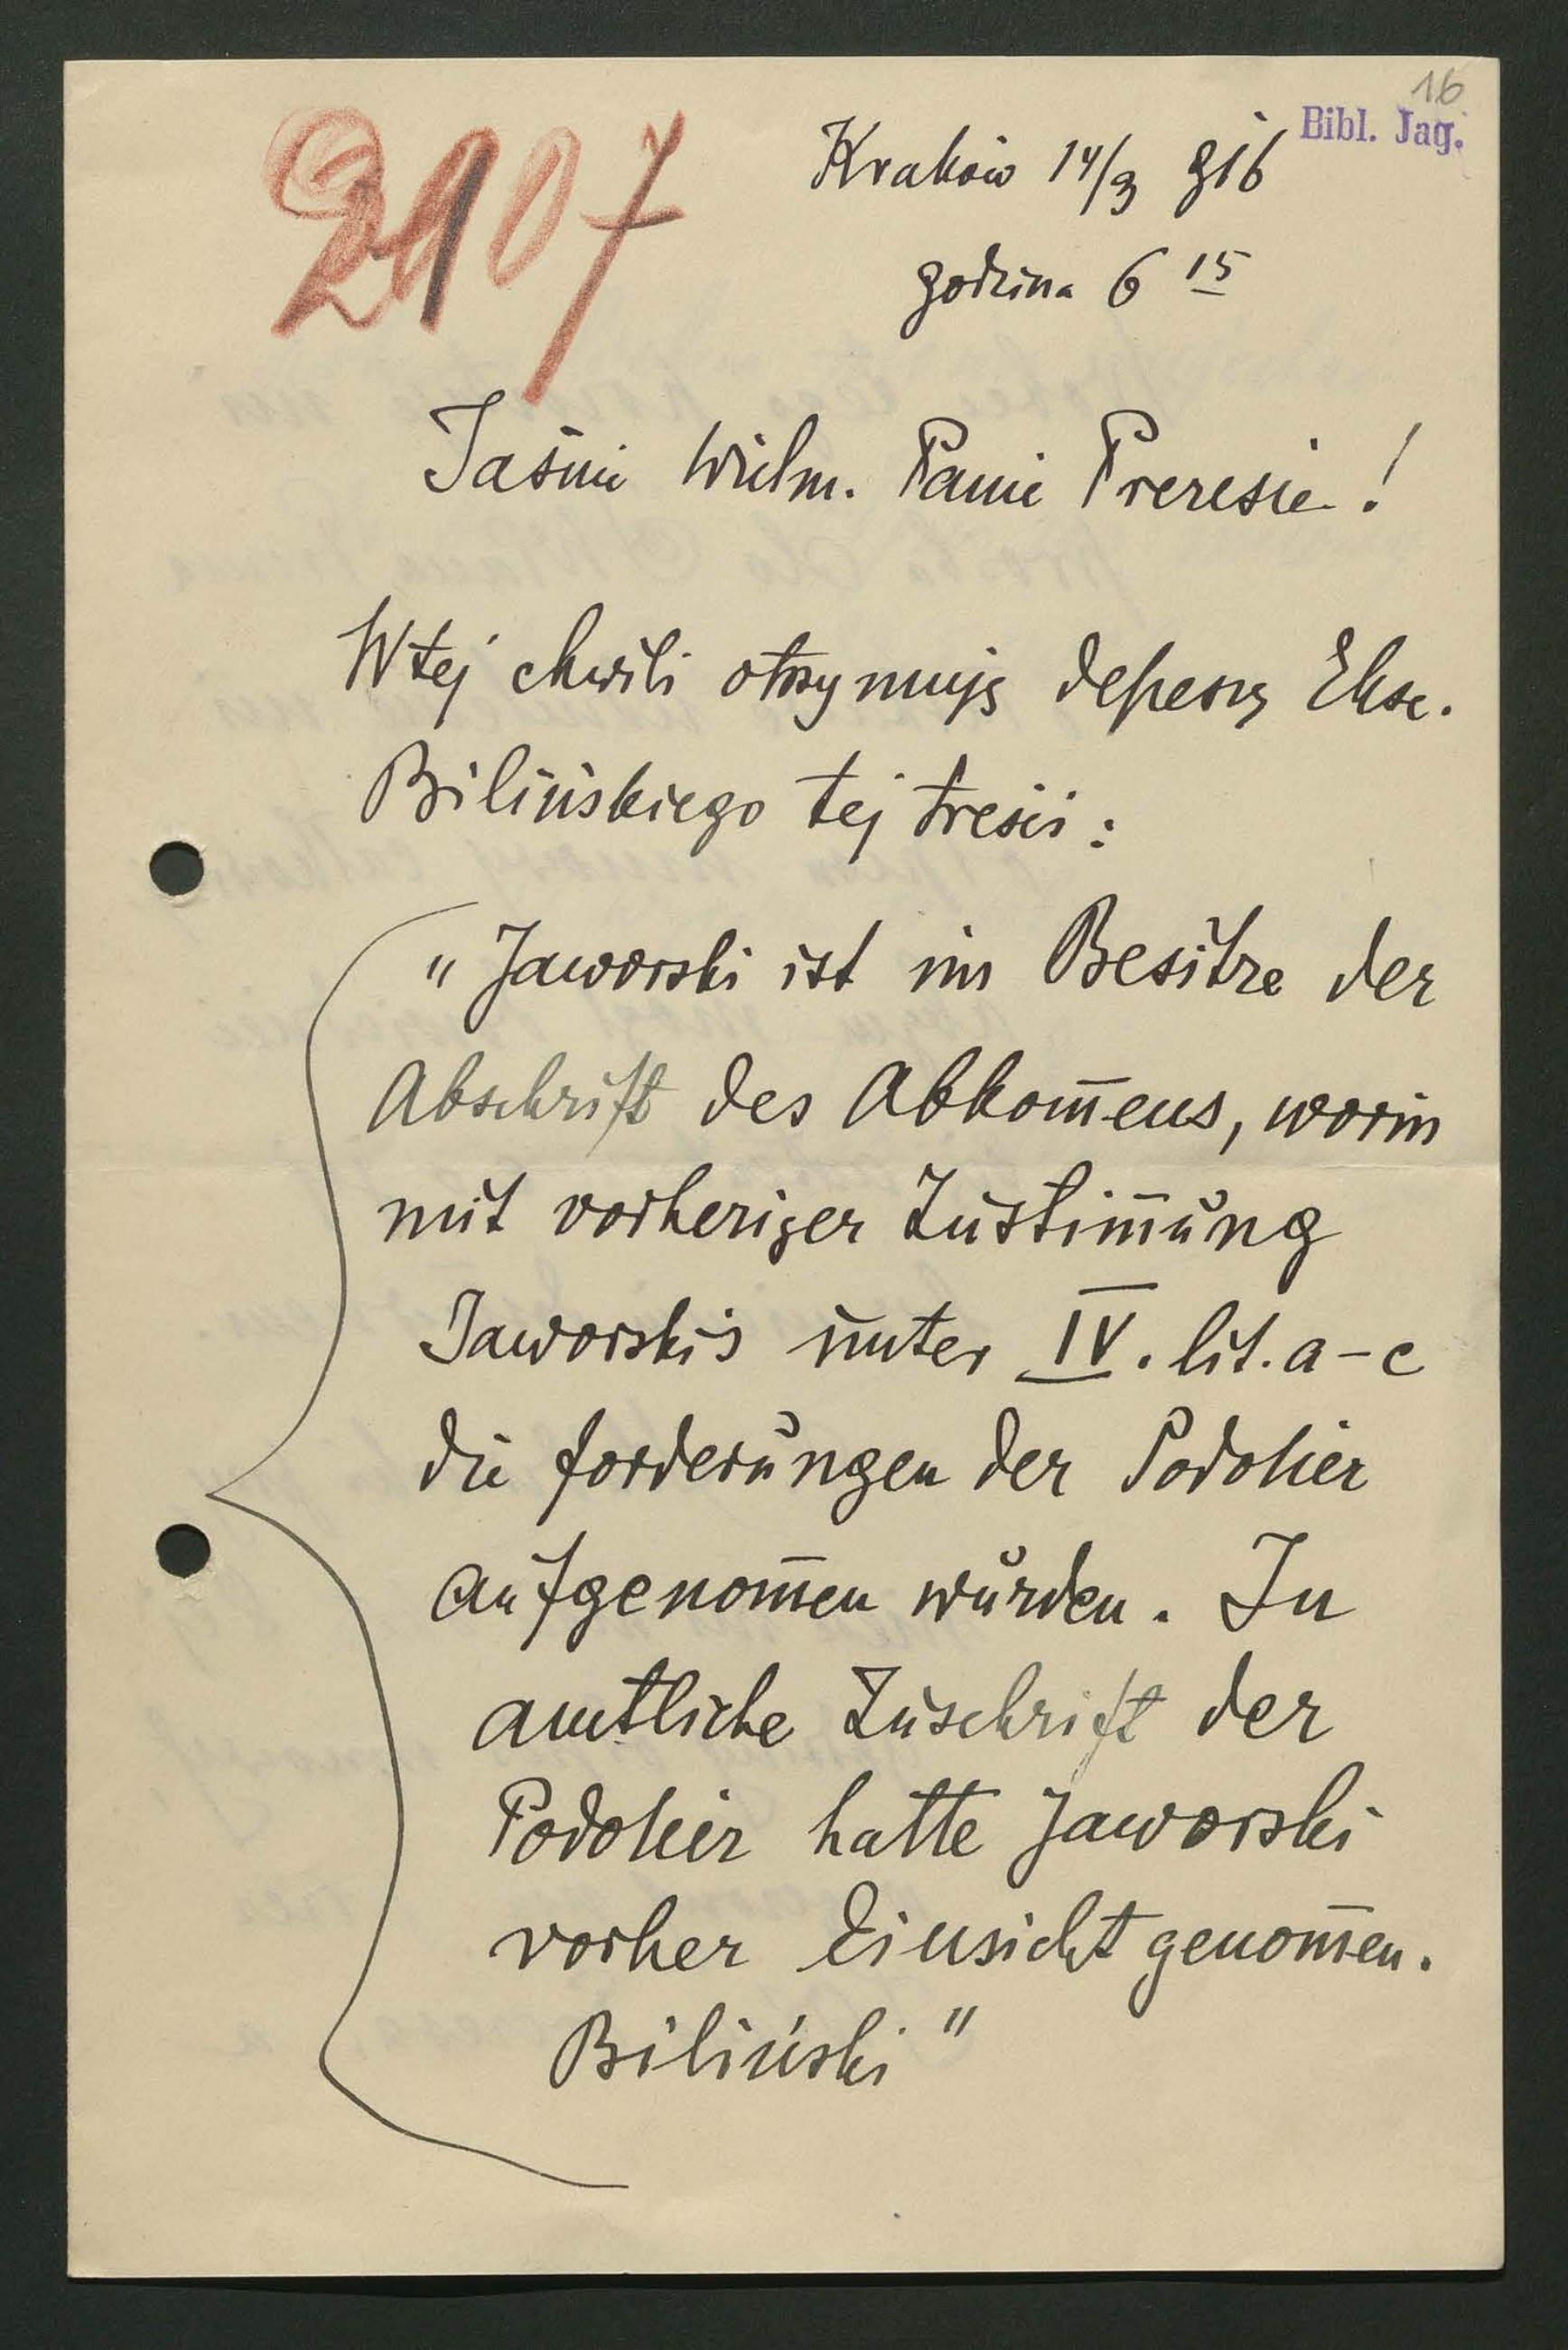 16
Bibl. Jag.
2907
Kraków 14/9 916
godzina 6 15
Jaśnie Wielm. Panie Prezesie!
W tej chwili otrzymuję depeszę Eksc.
Bilińskiego tej treści:
"Jaworski ist im Besitze der
Abschrift des Abkom̄ens, worin
mit vorheriger Zustim̄ung
Jaworskis unter IV. lit. a-c
die forderungen der Podolier
aufgenom̄en wurden. In
amtliche Zuschrift der
Podolier hatte Jaworski
vorher Einsicht genom̄en.
Biliński"